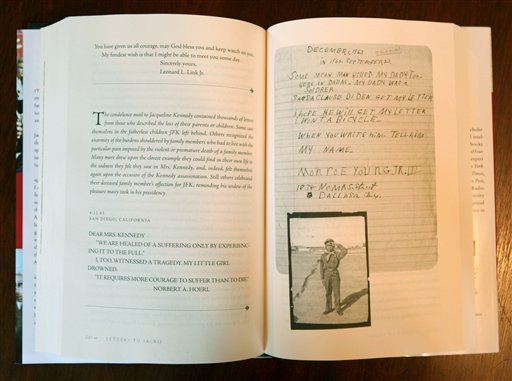 You have given us all courage, may God bless you and keep watch over you.
My fondest wish is that I might be able to meet you some day.
Sincerely yours,
Leonard L. Link Jr.
The condolence mail to Jacqueline Kennedy contained thousands of letters
from those who described the loss of their parents or children. Some saw
themselves in the fatherless children JFK left behind. Others recognized the
enormity of the burdens shouldered by family members who had to live with the
particular pain imposed by the violent or premature death of a family member.
Many more drew upon the closest example they could find in their own life to
the sadness they felt they saw in Mrs. Kennedy and, indeed, felt themselves
again upon the occasion of the Kennedy assassination. Still others celebrated
their deceased family member's affection for JFK, reminding his widow of the
pleasure many took in his presidency.
SAN DIEGO, CALIFORNIA
DEAR MRS. KENNEDY
"WE ARE HEALED OF A SUFFERING ONLY BY EXPERIENC-
ING IT TO THE FULL."
I, TOO, WITNESSED A TRAGEDY. MY LITTLE GIRL
DROWNED.
"IT REQUIRES MORE COURAGE TO SUFFER THAN TO DIE."
NORBERT A. HOERL
LETTERS TO JACKIE
DECEMBER, 1963
SOME MEAN MAN KILLED MY DADY TOO
HERE IN DALLAS. MY DADY WAS A
SOLDRER
SANDA CLAUSE DIDEN GET MY LETTER
I HOPE HE WILL GET MY LETTER
I WON'T A BICYCLE
WHEN YOU WRITE HIM. TELL HIM
MY NAME.
MONROE YOUNG JR. II